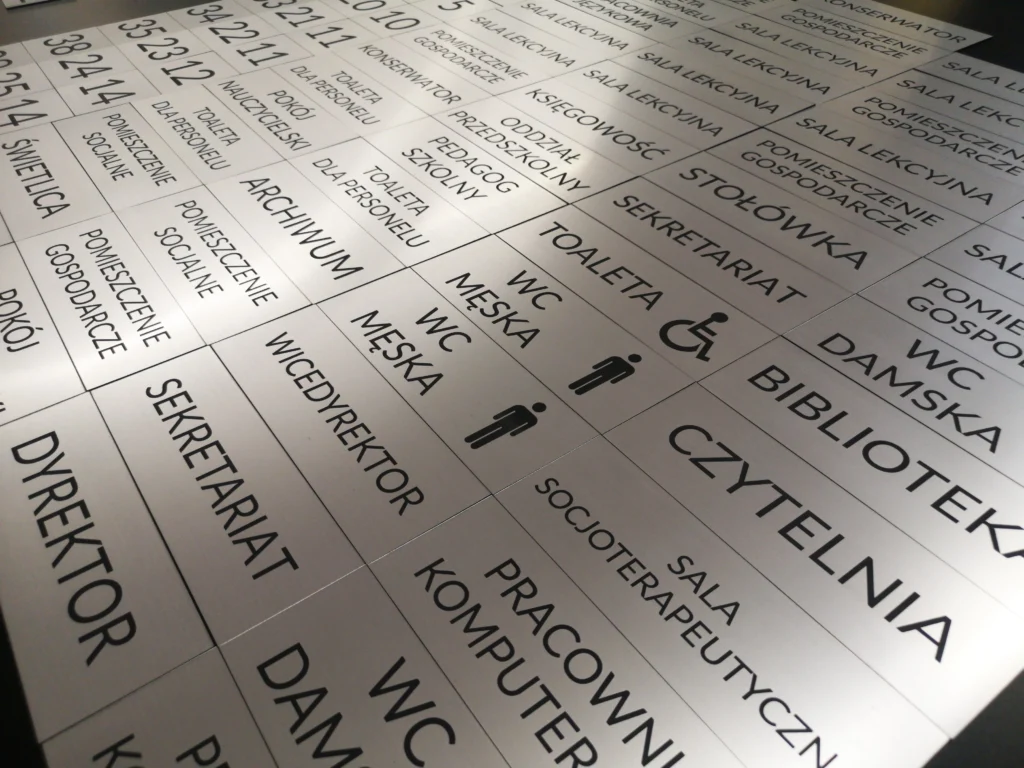 38
24
14
35
23
12
34
22
11
21
11
10
5
25
14
ŚWIETLICA
POMIESZCZENIE
SOCJALNE
TOALETA
DLA PERSONELU
POKÓJ
NAUCZYCIELSKI
TOALETA
DLA PERSONELU
KONSERWATOR
POMIESZCZENIE
GOSPODARCZE
SALA LEKCYJNA
SALA LEKCYJNA
POMIESZCZENIE
GOSPODARCZE
KONSERWATOR
POKÓJ
POMIESZCZENIE
GOSPODARCZE
POMIESZCZENIE
SOCJALNE
ARCHIWUM
TOALETA
DLA PERSONELU
PEDAGOG
SZKOLNY
ODDZIAŁ
PRZEDSZKOLNY
KSIĘGOWOŚĆ
SALA LEKCYJNA
SALA LEKCYJNA
SALA LEKCYJNA
DYREKTOR
SEKRETARIAT
WICEDYREKTOR
WC
MĘSKA
WC
MĘSKA
TOALETA
SEKRETARIAT
STOŁÓWKA
POMIESZCZENIE
GOSPODARCZE
SALA LEKCYJNA
POMIESZCZENIE
GOSPODARCZE
WC
PRACOWNI
KOMPUTER
SALA
SOCJOTERAPEUTYCZN
CZYTELNIA
BIBLIOTEKA
WC
DAMSKA